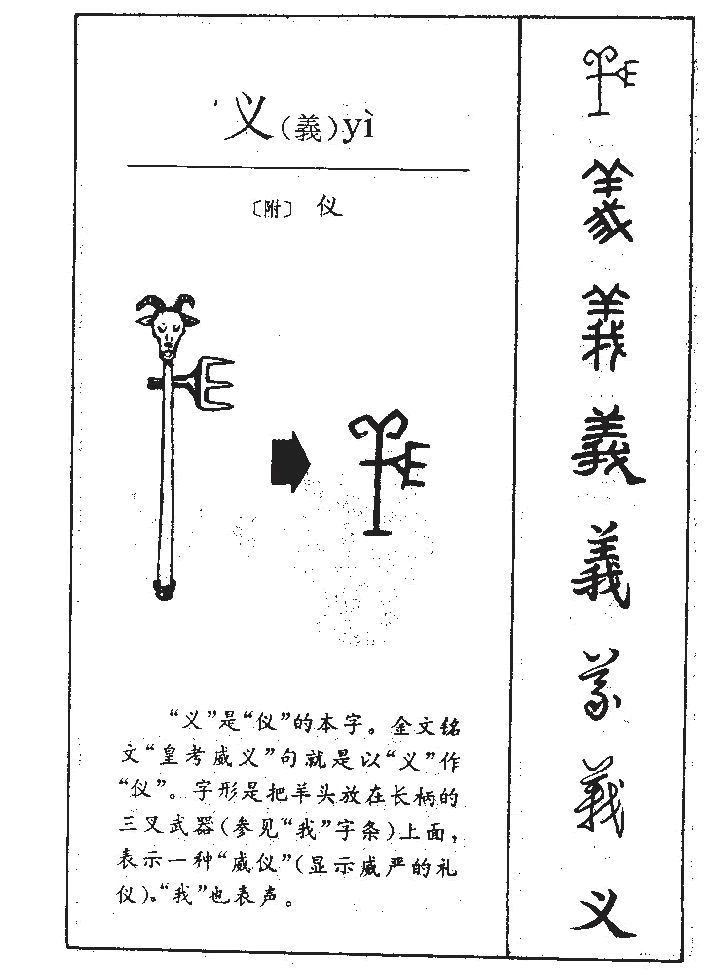 义(義)yì
〔附〕 仪
“义”是“仪”的本字。金文铭
文“皇考威义”句就是以“义”作
“仪”。字形是把羊头放在长柄的
三叉武器(参见“我”字条)上面,
表示一种“威仪”(显示威严的礼
仪)。“我”也表声。
義
義
義
義
义
義
义